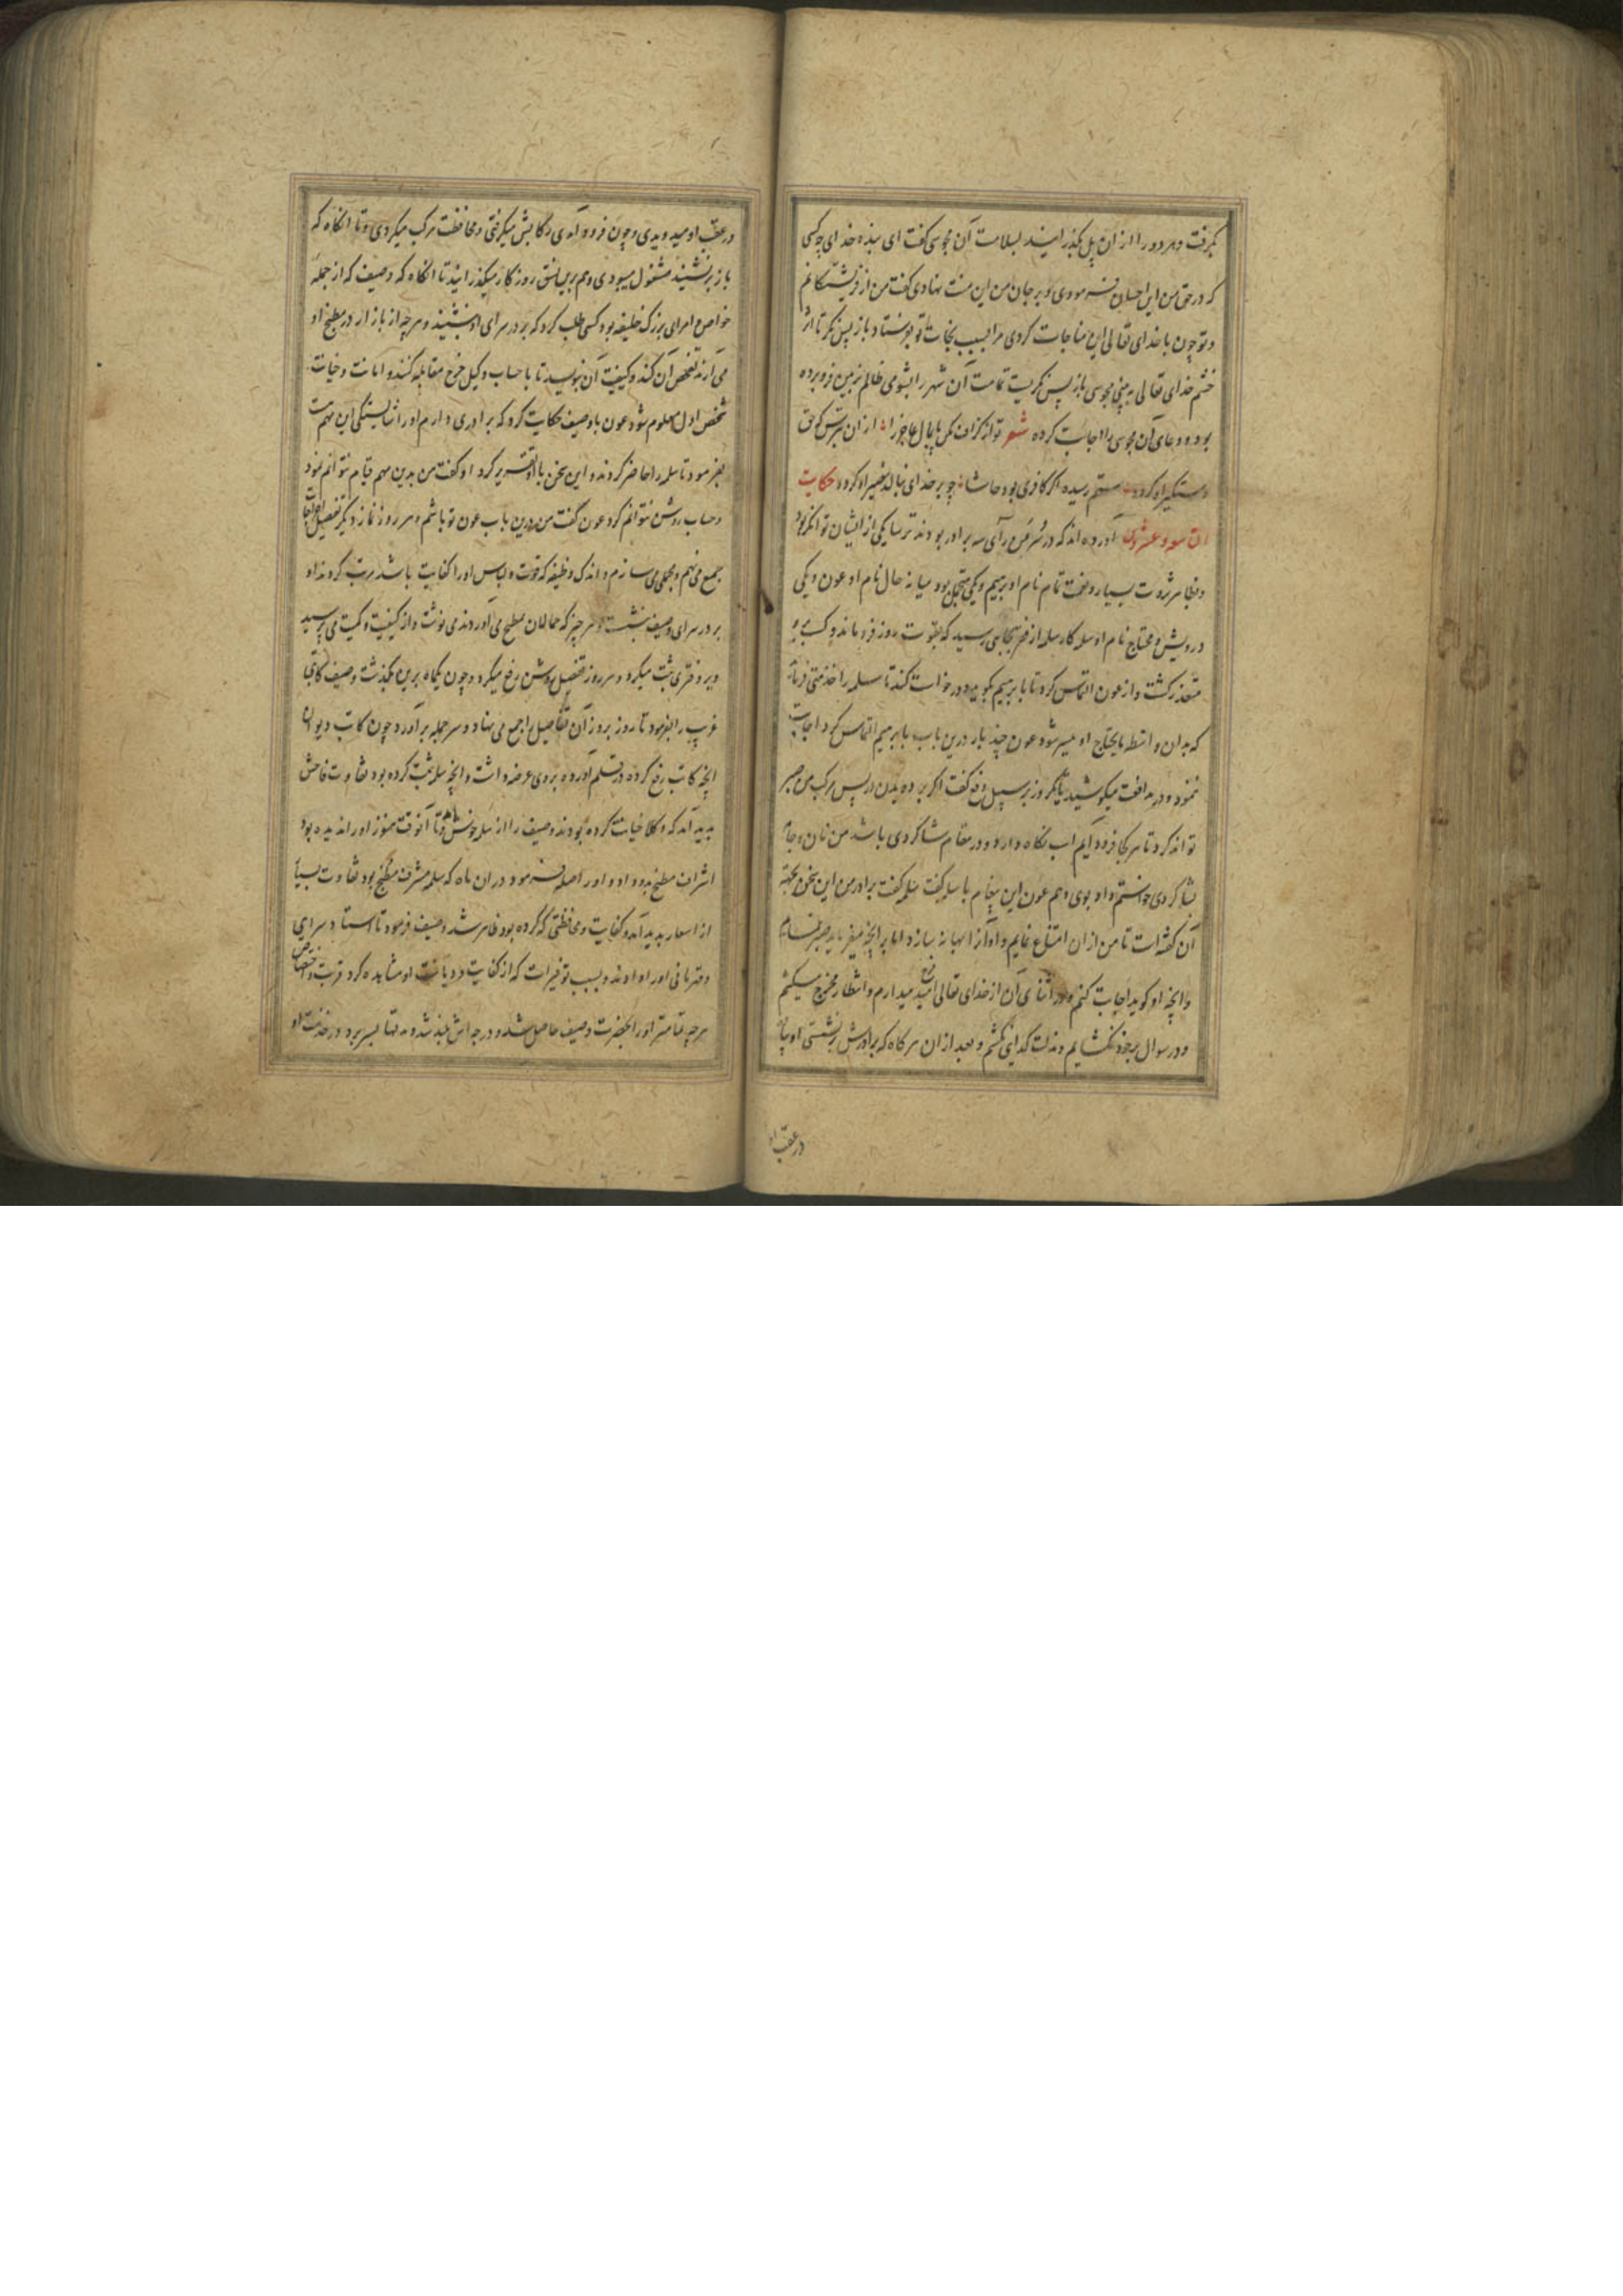 بگرفت و هر دو را از ان پل بگذرانید بسلامت آن مجوسی گفت ای بنده خدای چه کسی
که در حق من این احسان فرمودی و بر جان من این منت نهادی گفت من از فریشتگانم
و تو چون با خدای تعالی این مناجات کردی مرا بسبب نجات تو بفرستاد باز پس نکر تا اثر
خشم خدای تعالی به بینی مجوسی باز پس نکریست تمامت آن شهر را بشومی ظالم بزمین فرو برده
بود و دعای آن مجوسی را اجابت کرده شعر تو از کزاف مکن پایمال عاجز را از ان بترس که حق
دستگیر او کردد ستم رسیده اکر کافری بود حاشا چو بر خدای بنالد نصیر او کردد حکایت
التاسعه و عشرون آورده اند که در سُرّ مَن رآی سه برادر بودند ترسا یکی از ایشان توانکر بود
و بظاهر ثروت بسیار و نعمت تمام نام او بریهیم و یکی متجمل بود میانه حال نام او عون و یکی
درویش و محتاج نام او سلمه کار سلمه از فقر بجایی رسید که بقوت روز فرو ماند و کسب بر و
متعذر کشت و از عون التماس کرد تا با بریهیم بکوید و درخواست کند تا سلمه را خدمتی فرماید
که بدان واسطه مایحتاج او میسر شود عون چند بار درین باب با بریهیم التماس کرد اجابت
ننمود و در مدافعت میکوشید تا یکروز بر سبیل فرح گفت اکر برده بدن در پس مرکب من صبر
تواند کرد تا هر کجا فرود آیم اسب نکاه دارد و در مقام شاکردی باشد من نان و جامه
شاکردی خواستم داد بوی دهم عون این پیغام با سلمه گفت سلمه گفت برادر من این سخن بجهت
آن گفته است تا من از ان امتناع نمایم و او آنرا بهانه سازد اما بر انچه میفرماید صبر نمایم
و انچه او کوید اجابت کنم و در اثنای آن از خدای تعالی امید فرج میدارم و انتظار مخرج میکشم
و در سوال بر خود نکشایم و مذلت کدایی نکشم و بعد از ان هر کاه که برادرش بر نشستی او پیاده
در عقب او
در عقب او میدویدی و چون فرود آمدی رکابش میکرفتی و محافظت مرکب میکردی و تا انکاه که
باز بر نشیند مشغول میبودی و هم برین نسق روزکار میکذرانید تا انکاه که وصیف که از جمله
خواص و امرای بزرک خلیفه بود کسی طلب کرد که بر در سرای او بنشیند و هر چه از بازار در مطبخ او
می آرند تفحص آن کند و کیفیت آن بنویسد تا با حساب وکیل خرج مقابله کنند و امانت و خیانت
شخص اول معلوم شود عون با وصیف حکایت کرد که برادری دارم او را شایستکی این مهم هست
بفرمود تا سلمه را حاضر کردند و این سخن با او تقریر کرد او گفت من بدین مهم قیام نتوانم نمود
و حساب روشن نتوانم کرد عون گفت من درین باب عون تو باشم و هر روز نماز دیکر تفصیل اخراجات
جمع می نهم و مجملی می سازم و اندک وظیفه که قوت و لباس او را کفایت باشد مرتب کردند او
بر در سرای وصیف بنشست و هر چیز که حمالان مطبخ می آوردند می نوشت و از کیفیت و کمیت می پرسید
و بر دفتری ثبت میکرد و هر روز تفصیل روشن رفع میکرد و چون یکماه برین بکذشت وصیف کاتبی
غریب را بفرمود تا روز بروز آن تفاصیل را جمع می نهاد و سر جمله بر آورد و چون کاتب دیوان
انچه کاتب رفع کرده در قلم آورده بر وی عرضه داشت و انچه سلمه ثبت کرده بود تفاوت فاحش
پدید آمد که وکلا خیانت کرده بودند وصیف را از سلمه خوش آمد و تا آنوقت هنوز او را ندیده بود
اشراف مطبخ بدو داد و او را صله فرمود در ان ماه که سلمه مشرف مطبخ بود تفاوت بسیار
از اسعار پدید آمد و کفایت و محافظتی که کرده بود ظاهر شد وصیف فرمود تا استاد سرایی
و قهرمانی او را دادند و بسبب توفیرات که از کفایت و دیانت او مشاهده کرد قربت و اختصاص
هر چه تمامتر او را بحضرت وصیف حاصل شد و درجه اش بلند شد و مدتها بسر برد در خدمت او